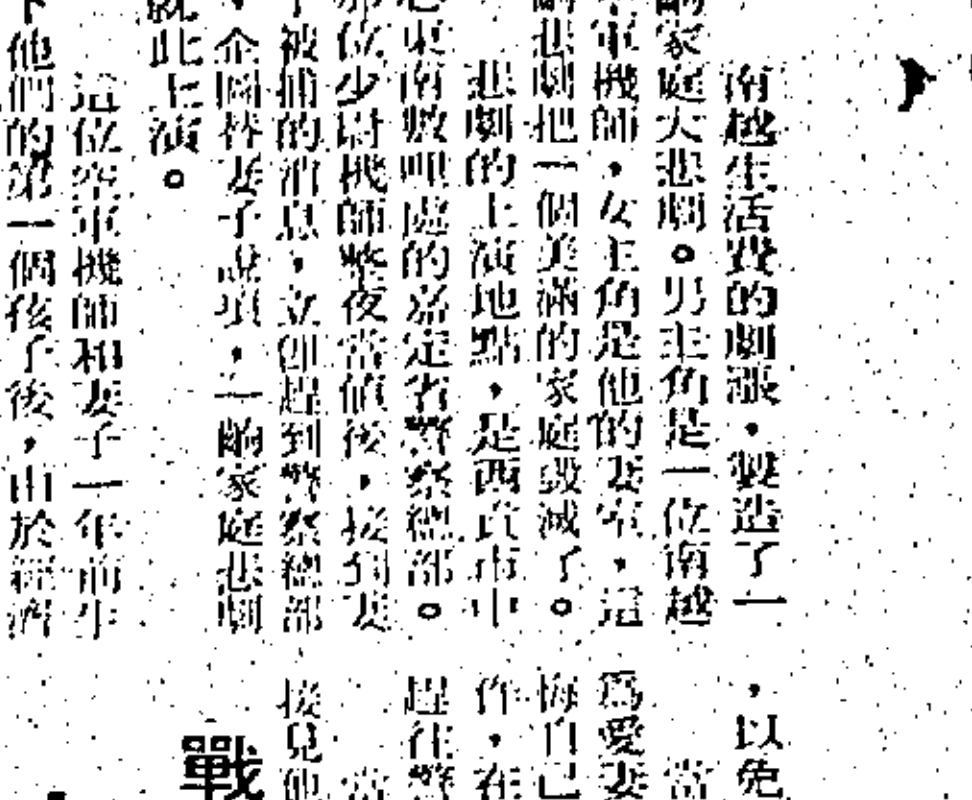 南越生活費的劇漲，製造了一
齣家庭大悲劇。男主角是一位南越
空軍機師，女主角是他的妻室，這
齣悲劇把一個美滿的家庭毀滅了。
悲劇的上演地點，是西貢市中
心東南數哩處的嘉定省警察總部。
那位少尉機師整夜當值後，接到妻
子被捕的消息，立即趕到警察總部
，企圖替妻子說項，一齣家庭悲劇
就此上演。
這位空軍機師和妻子一年前生
下他們的第一個孩子後，由於經濟
，以免
當
爲愛妻
悔自己
作，在
趕往警
當
接見他
戰